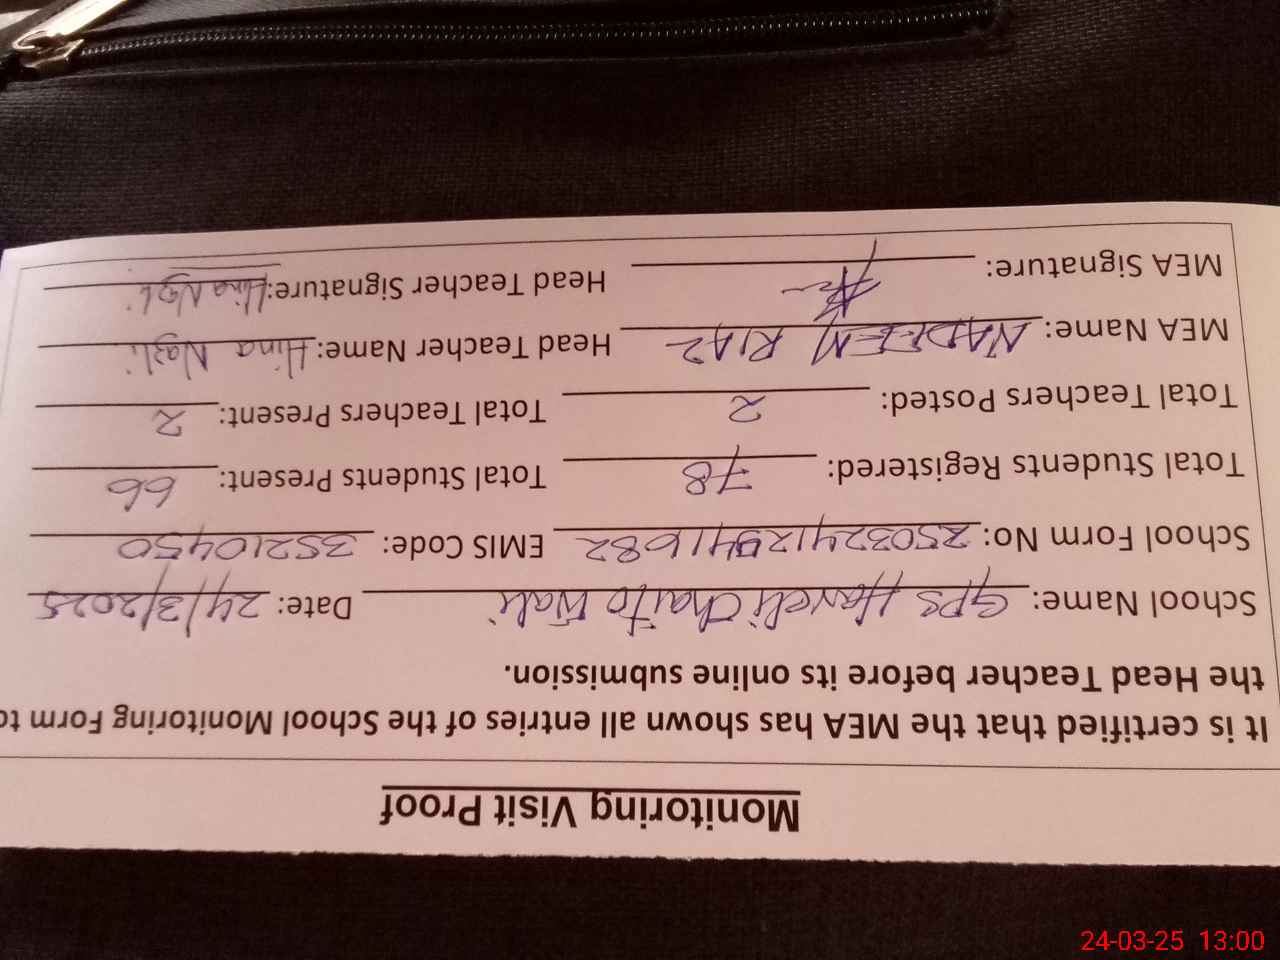 Monitoring Visit Proof
It is certified that the MEA has shown all entries of the School Monitoring Form to
the Head Teacher before its online submission.
School Name: GPS Haveli Chaito Wali Date: 24/3/2025
School Form No: EMIS Code: 35210450
Total Students Registered: 78 Total Students Present: 66
Total Teachers Posted: 2 Total Teachers Present: 2
MEA Name: NADEEM RIAZ Head Teacher Name: Hina Nazli
MEA Signature: Head Teacher Signature: Hina Nazli
24-03-25 13:00